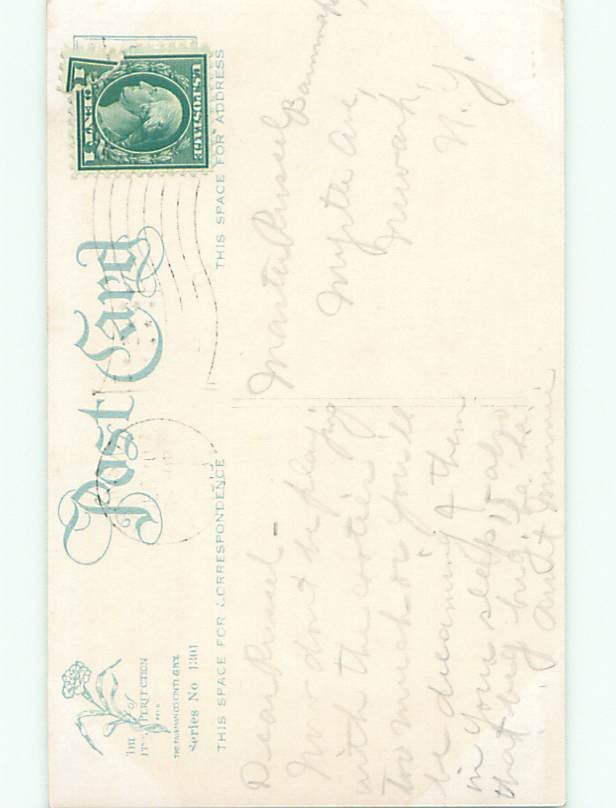 THE
of
PERFECTION
THE FAIRMAN CO. CINTI. & N.Y.
Series No 1301
Post Card
THIS SPACE FOR CORRESPONDENCE
THIS SPACE FOR ADDRESS
U.S. POSTAGE
1 CENT 1
Dear Russel -
Now don't be playing
with the cooties
too much or you'll
be dreaming of them
in your sleep, also
that big bug
Aunt Minnie
Master Russel
Myrtle Ave,
Newark,
N.Y.